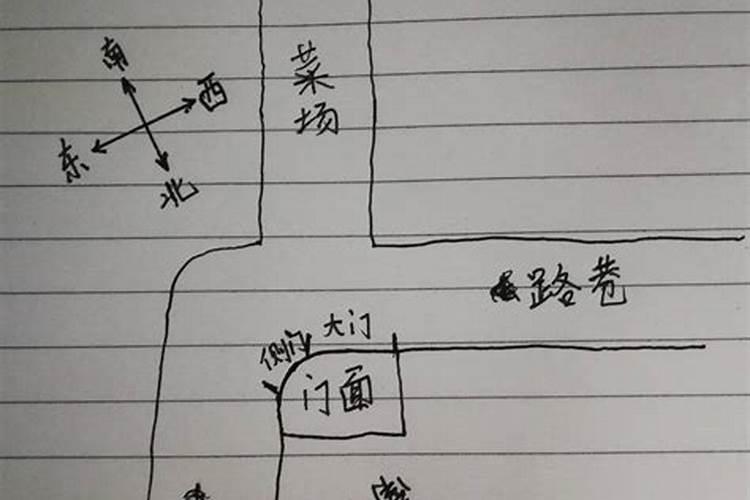 南
西
东
北
菜
场
路巷
大门
侧门
门面